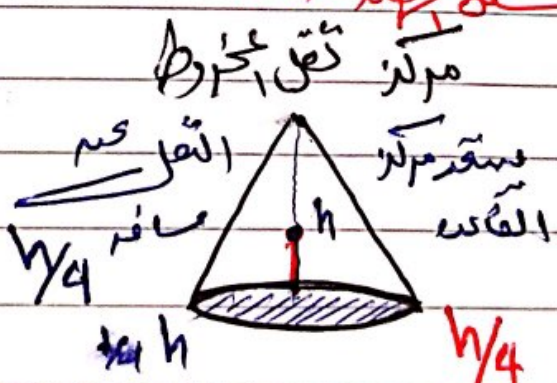 مركز ثقل المخروط
يبعد مركز الثقل عن
القاعدة مسافة
h
h/4
h
h/4